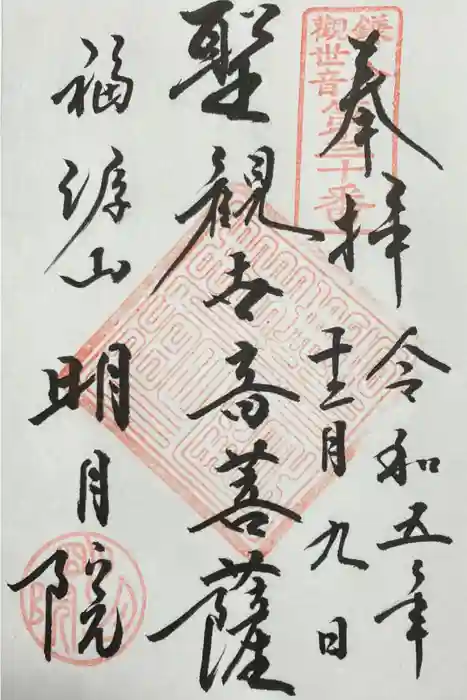 鎌倉
觀世音第三十番
奉拝
令和五年
十二月九日
聖観世音菩薩
福源山
明月院